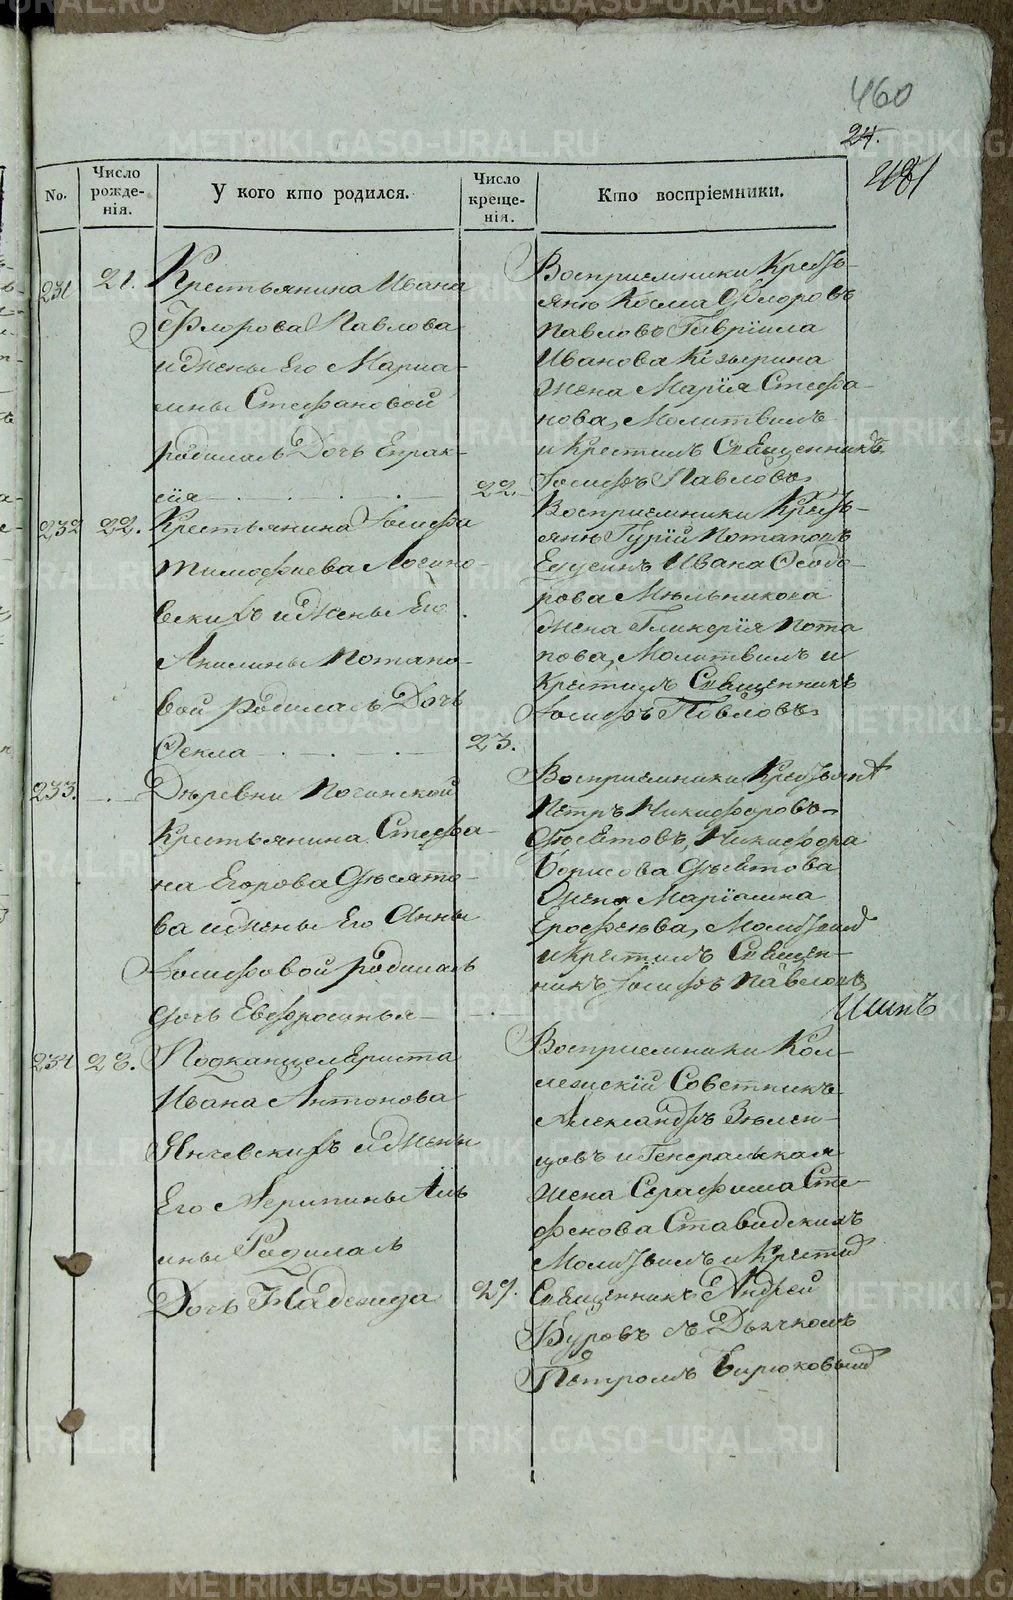 460
24.
No.
Число рожде-нія.
У кого кто родился.
Число креще-нія.
Кто воспріемники.
231
21.
Крестьянина Ивана
Флорова Павлова
и жены Его Мариа-
мны Стефановой
родилась Дочь Епрак-
сіа
22
Воспрiемники Кресть-
янѣ Косма Флоровъ
Павловъ Гаврiила
Иванова
жена Марiя Стефа-
нова, Молитвилъ
и крестилъ Священникъ
Іосифъ Павловъ
232
22.
Крестьянина Іосифа
Тимофиева Логино-
вскихъ и жены Его
Акилины Потапо-
вой родилась Дочь
Фекла
23.
Воспрiемники Кресть-
янѣ Гурiй Потаповъ
Ивана Феодо-
рова Мѣльникова
жена Гликерiя Пота
пова, Молитвилъ и
крестилъ Священникъ
Іосифъ Павловъ
233.
Деревни
Крестьянина Стефа-
на Егорова Фѣсято-
ва и жены Его Анны
Іосифовой родилась
дочь Евфросинья
Воспрiемники Крестьянѣ
Петръ Никифоровъ
Никифора
Борисова
жена Марiамна
Ерофеѣва, Молитвилъ
и крестилъ Священ-
никъ Іосифъ Павловъ
234
23.
Подканцеляриста
Ивана Антонова
Янчевскихъ и жены
Его Агрипины Иль
ины Родилась
Дочь Надежда
27.
Воспрiемники Кол-
лежскiй Советникъ
Александръ Зѣлен-
цовъ и Генеральская
жена Серафима Сте-
фанова
Молитвилъ и крестилъ
Священникъ Андрей
Буровъ съ Дьячкомъ
Петромъ Бирюковымъ
METRIKI.GASO-URAL.RU